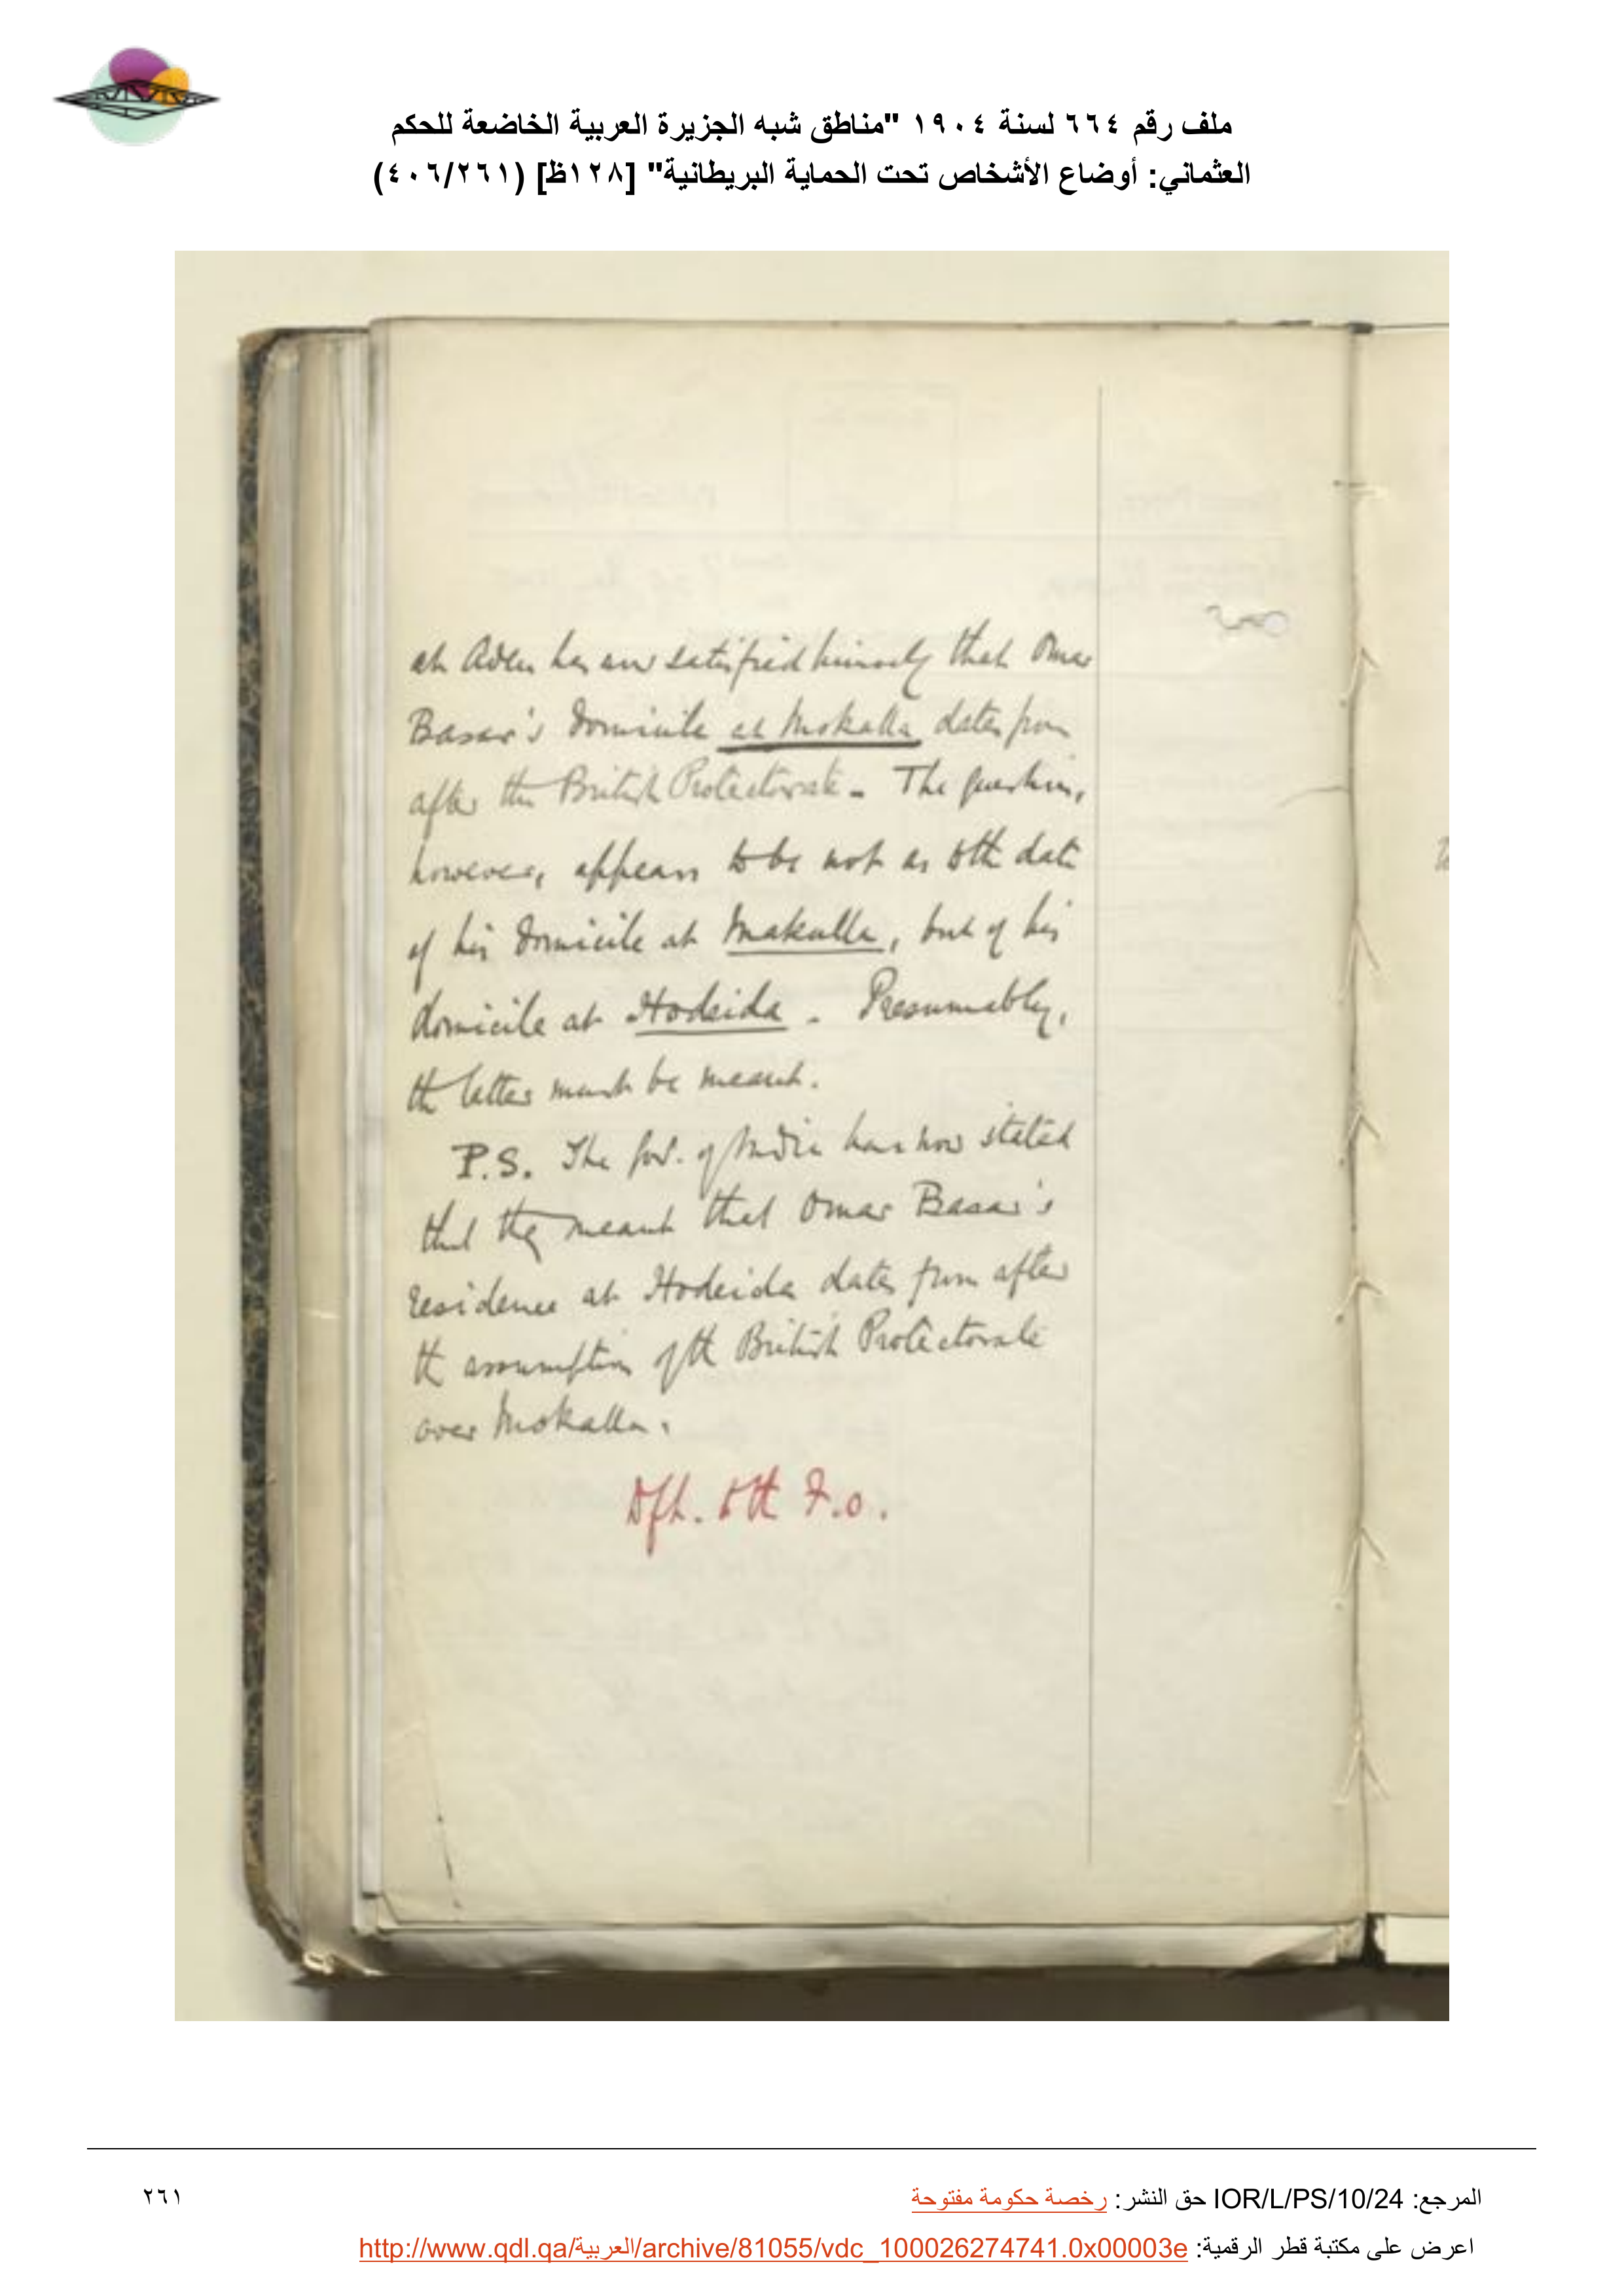 ملف رقم ٦٦٤ لسنة ١٩٠٤ "مناطق شبه الجزيرة العربية الخاضعة للحكم
العثماني: أوضاع الأشخاص تحت الحماية البريطانية" [١٢٨ظ] (٤٠٦/٢٦١)
at Aden has now satisfied himself that Omar
Basar's domicile at Mokalla dates from
after the British Protectorate - The question,
however, appears to be not as to the date
of his domicile at Makalla, but of his
domicile at Hodeida - Presumably,
the latter must be meant.
P.S. The Gov. of India has now stated
that they meant that Omar Basar's
residence at Hodeida dates from after
the assumption of the British Protectorate
over Mokalla.
Dft. to the F.O.
المرجع: IOR/L/PS/10/24 حق النشر: رخصة حكومة مفتوحة
٢٦١
اعرض على مكتبة قطر الرقمية: http://www.qdl.qa/العربية/archive/81055/vdc_100026274741.0x00003e